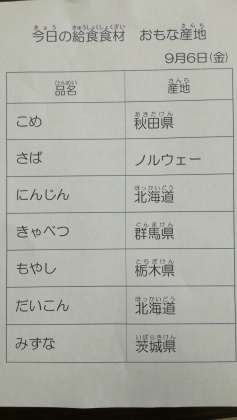 今日の給食食材　おもな産地
9月6日(金)
品名　産地
こめ　秋田県
さば　ノルウェー
にんじん　北海道
きゃべつ　群馬県
もやし　栃木県
だいこん　北海道
みずな　茨城県